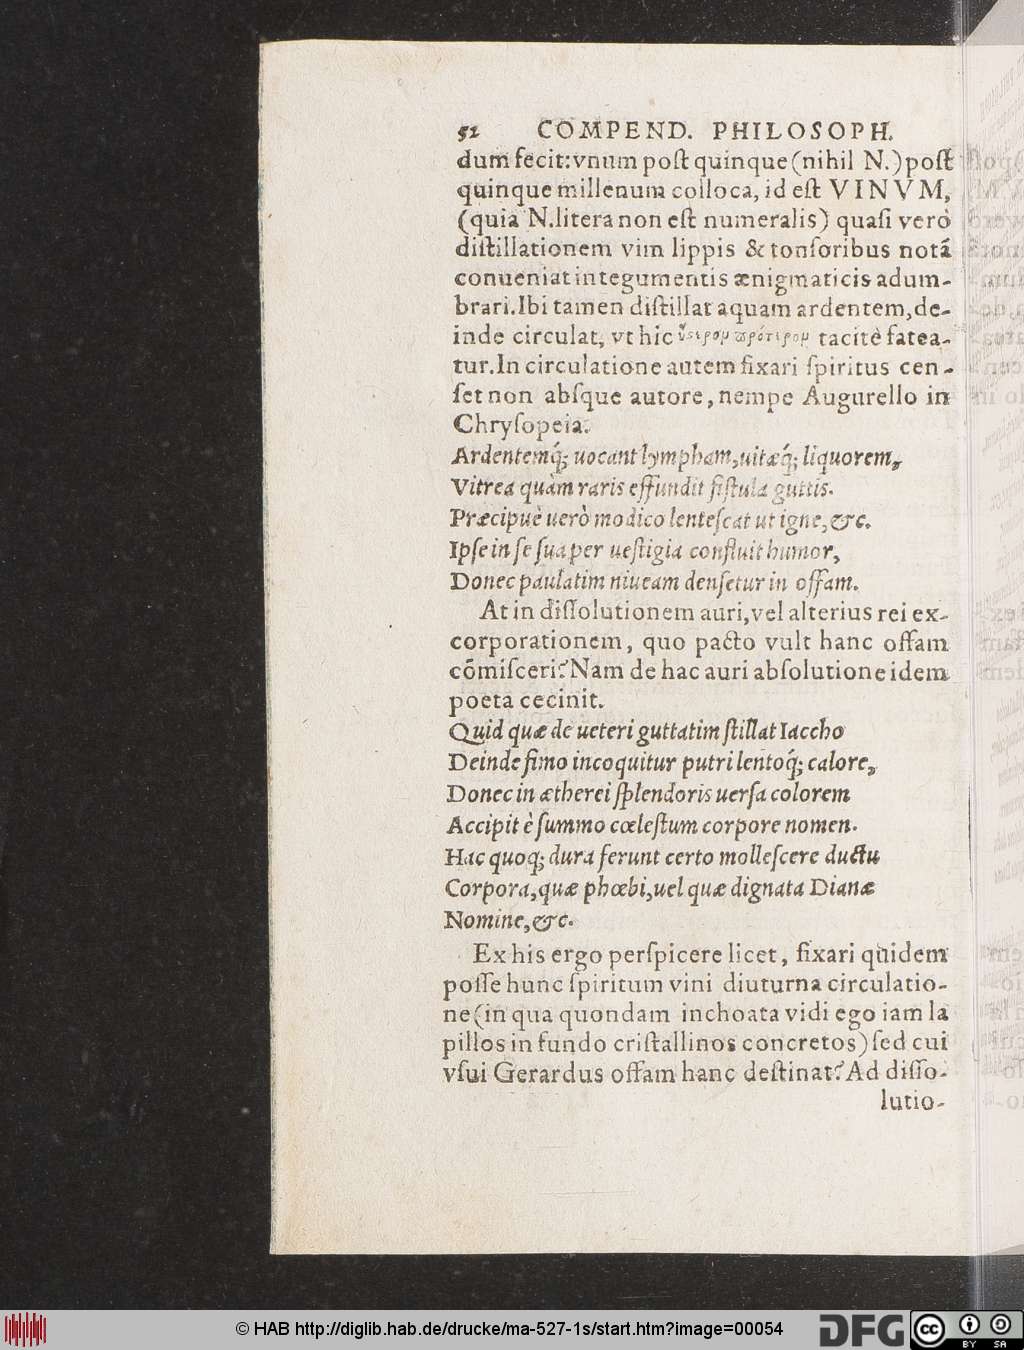 52 COMPEND. PHILOSOPH.
dum fecit: vnum poſt quinque (nihil N.) poſt
quinque millenum colloca, id eſt VINVM,
(quia N. litera non eſt numeralis) quaſi verò
diſtillationem vim lippis & tonſoribus notã
conueniat integumentis ænigmaticis adum-
brari. Ibi tamen diſtillat aquam ardentem, de-
inde circulat, vt hic ὕστερον πρότερον tacitè fatea-
tur. In circulatione autem fixari ſpiritus cen-
ſet non abſque autore, nempe Augurello in
Chryſopeia:
Ardentemq́; uocant lympham, uitæq́; liquorem,
Vitrea quàm raris effundit fiſtula guttis.
Præcipuè uerò modico lenteſcat ut igne, &c.
Ipſe in ſe ſua per ueſtigia confluit humor,
Donec paulatim niueam denſetur in offam.
At in diſſolutionem auri, vel alterius rei ex-
corporationem, quo pacto vult hanc offam
cõmiſceri? Nam de hac auri abſolutione idem
poeta cecinit.
Quid quæ de ueteri guttatim ſtillat Iaccho
Deinde fimo incoquitur putri lentoq́; calore,
Donec in ætherei ſplendoris uerſa colorem
Accipit è ſummo cœleſtum corpore nomen.
Hac quoq; dura ferunt certo molleſcere ductu
Corpora, quæ phœbi, uel quæ dignata Dianæ
Nomine, &c.
Ex his ergo perſpicere licet, fixari quidem
poſſe hunc ſpiritum vini diuturna circulatio-
ne (in qua quondam inchoata vidi ego iam la
pillos in fundo criſtallinos concretos) ſed cui
vſui Gerardus offam hanc deſtinat? Ad diſſo-
lutio-
© HAB http://diglib.hab.de/drucke/ma-527-1s/start.htm?image=00054
DFG
cc
BY SA